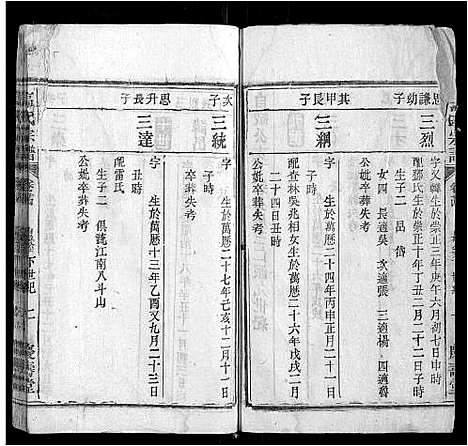 思謙幼子
三烈
字又韓生於崇正三年庚午六月初七日申時
配鄧氏生於崇正十年丁丑二月二十二日子時
生子二 呂 岱
女四 長適吳 次適張 三適楊 四適魯
公妣卒葬失考
其甲長子
三綱
字 生於萬曆二十四年丙申正月二日
時
配林吳兆相女生於萬曆二十六年戊戌二月
二十四日丑時
公妣卒葬失考
次子
三統
字 生於萬曆二十七年己亥十二月十一日
子時
公妣卒葬失考
思升長子
三達
字 生於萬曆十三年乙酉又九月二十三日
丑時
配雷氏
生子二 俱葬江南八斗山
公妣卒葬失考
宗譜
慶壽堂